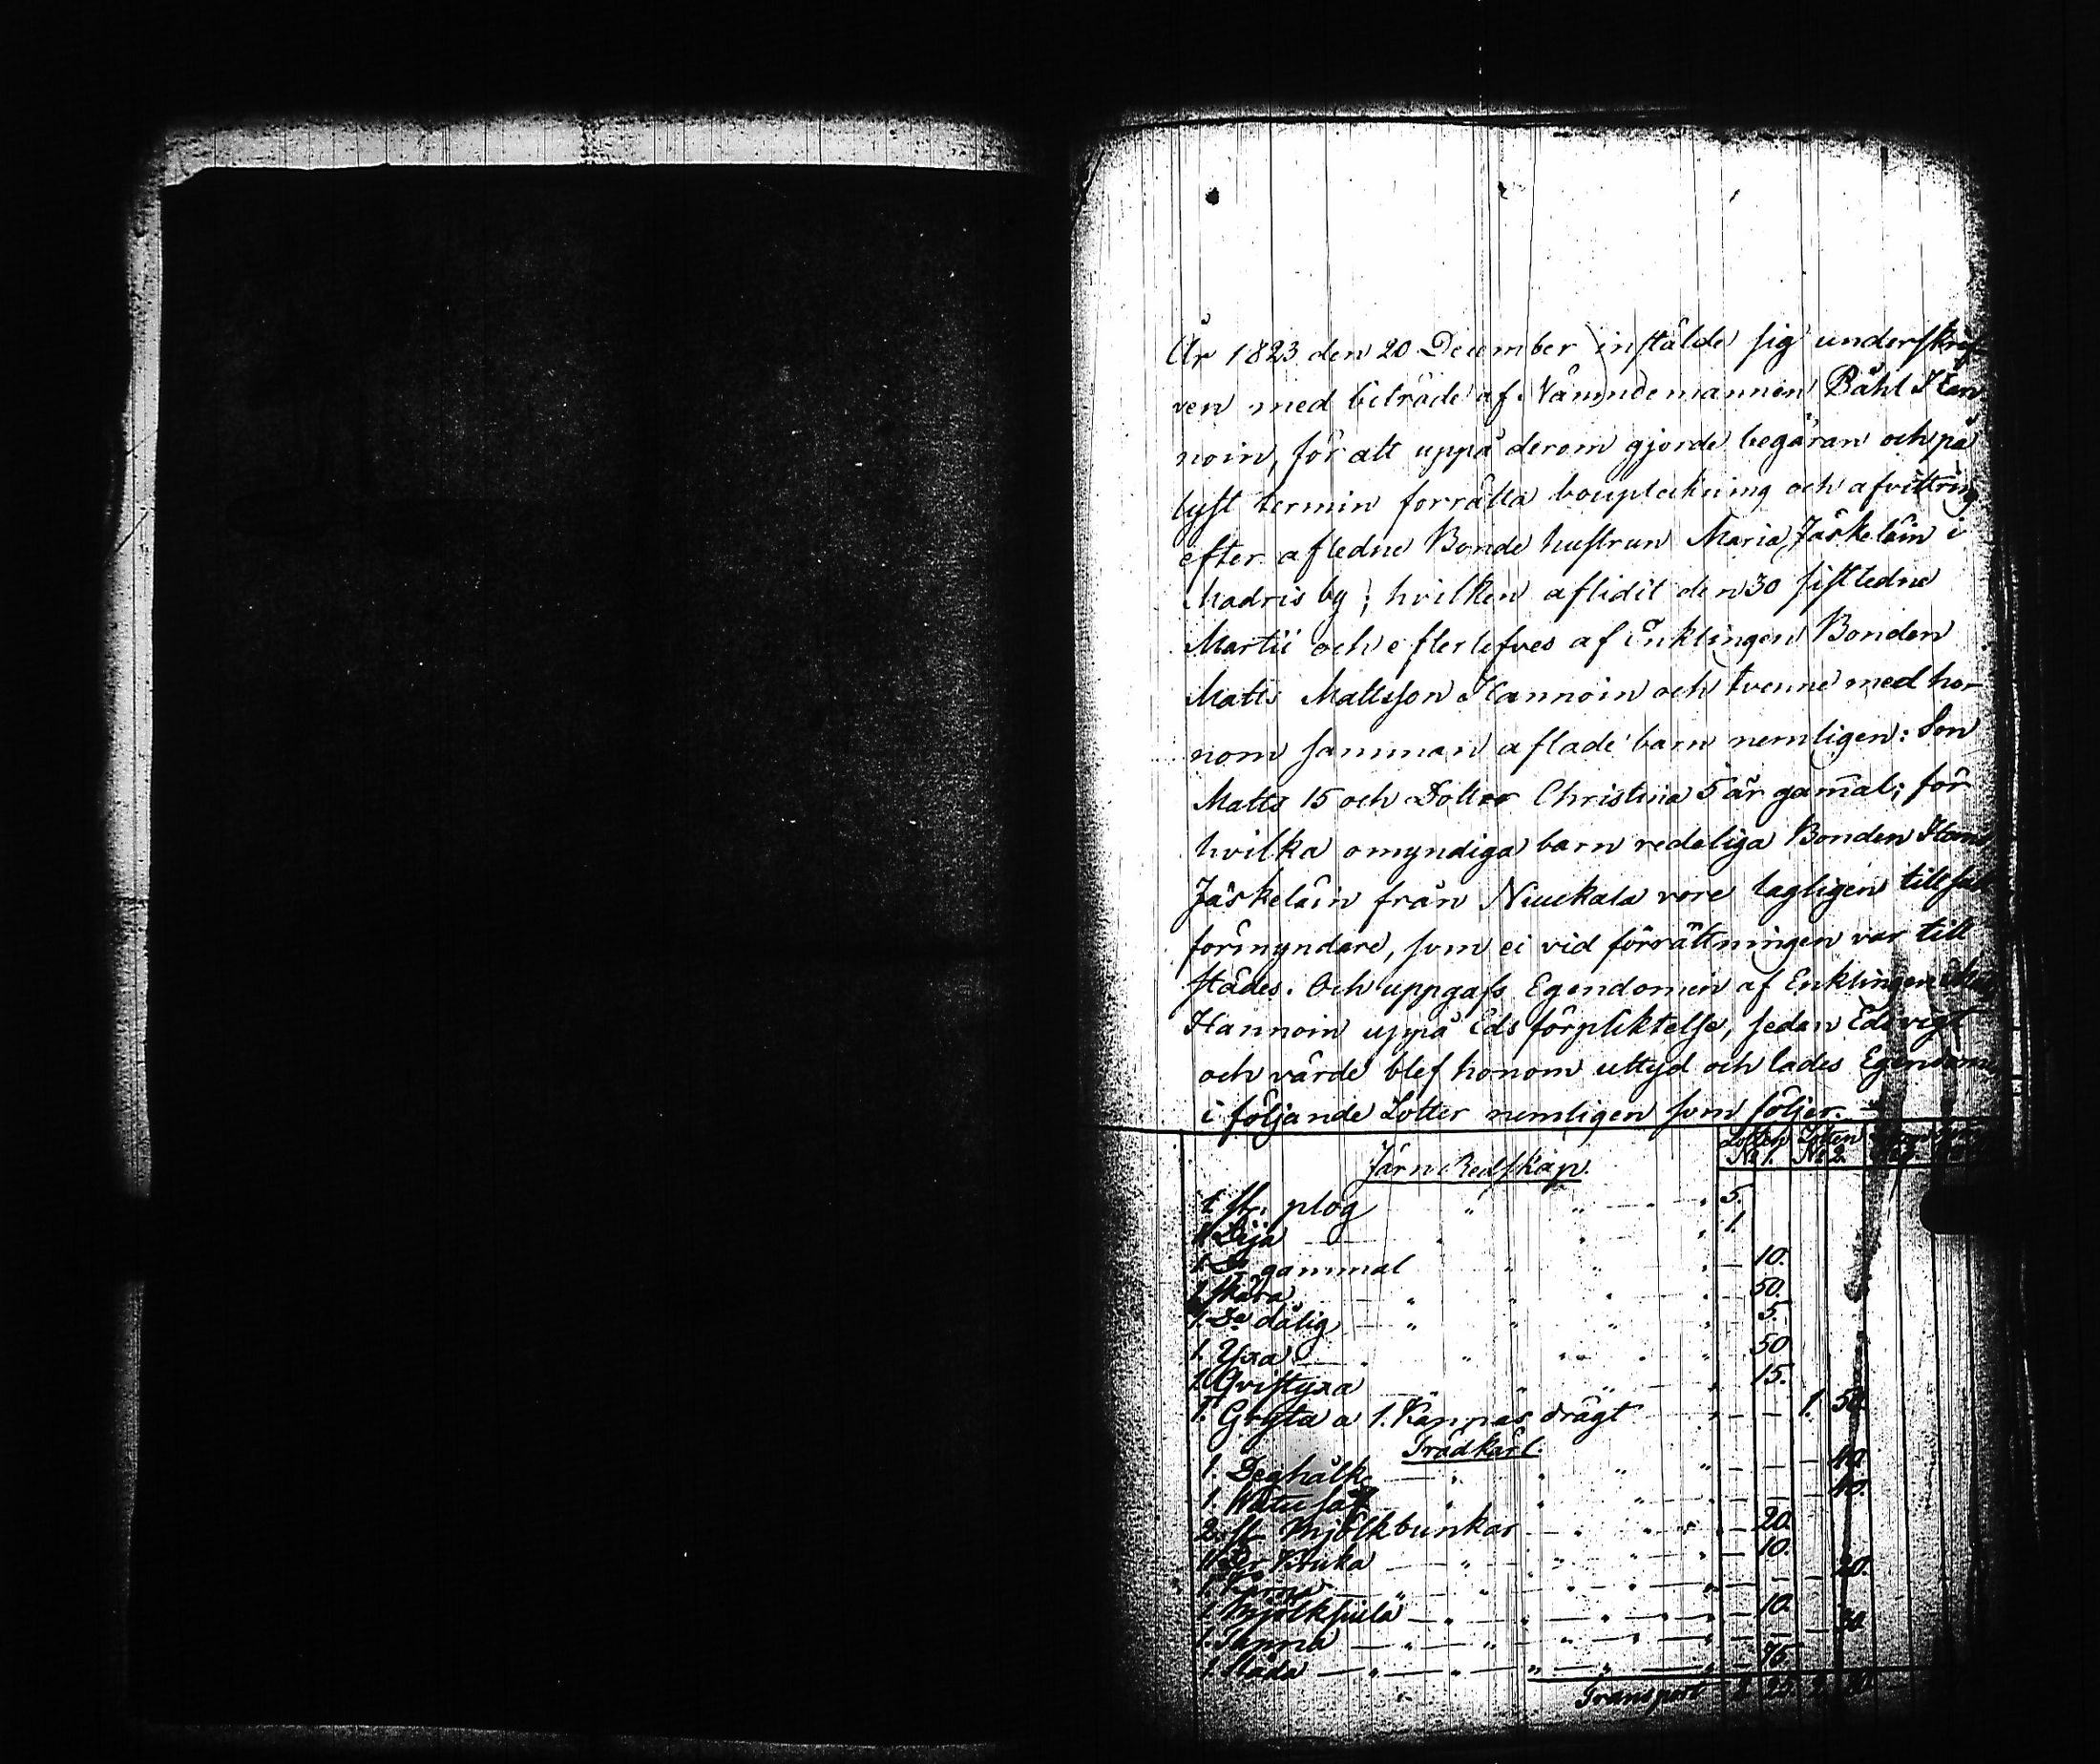 År 1823 den 20 December instälde sig underskrif-
ven med biträde af Nämndemannen Påhl Han
noin, för att uppå derom gjorde begäran och på
lyst termin forrätta bouptekning och afvittring
efter afledne Bonde hustrun Maria Jäskeläin i
Madris by; hvilken aflidit den 30 sistledne
Martii och efterlefves af Enklingen Bonden
Matts Mattsson Hannoin och tvenne med ho-
nom samman aflade barn nemligen: Son
Matts 15 och Dotter Christina 5 år gamal; för
hvilka omyndiga barn redeliga Bonden Hans
Jäskeläin från Niuckala vore lagligen tillsatt
förmyndare, som ei vid förrättningen var till
städes. Och uppgafs Egendomen af Enklingen
Hannoin uppå Eds förpliktelse, sedan Eds vigt
och värde blef honom uttyd och lades Egendomen
i följande Lotter nemligen som följer.
Lotten Lotten
Järn Redskap. No 1. No 2.
1 st. plog 5.
1 Lija 1.
1 Do gammal 10.
1 skära 50.
1. Do dålig 5.
1. Yxa 50
1 Qvistyxa 15.
1. Gryta a 1. Kappas drägt 1. 50.
Trädkärl.
1. Deghålk 40.
1. 40.
2 st Mjölkbunkar 20.
1 10.
1 Kärna 20.
1 Mjölksiila 10.
1. 30
1 Slåda 75.
Transport